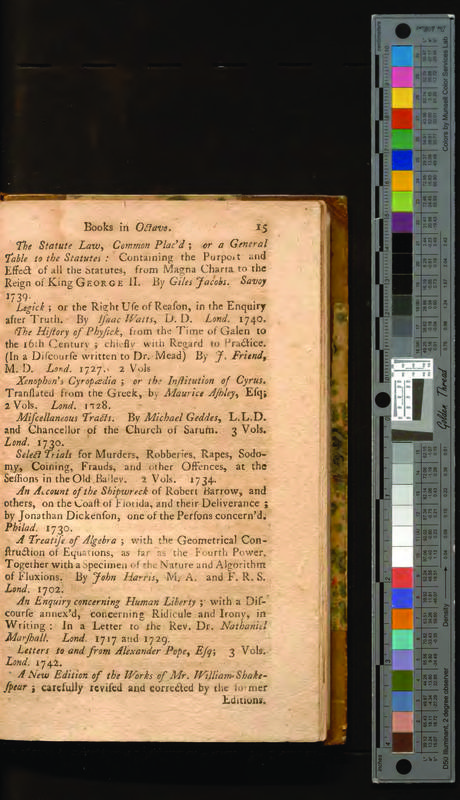 Books in Octavo. 15
The Statute Law, Common Plac'd ; or a General
Table to the Statutes : Containing the Purport and
Effect of all the Statutes, from Magna Charta to the
Reign of King GEORGE II. By Giles Jacobs. Savoy
1739.
Logick ; or the Right Uſe of Reaſon, in the Enquiry
after Truth. By Iſaac Watts, D. D. Lond. 1740.
The Hiſtory of Phyſick, from the Time of Galen to
the 16th Century ; chiefly with Regard to Practice.
(In a Diſcourſe written to Dr. Mead) By J. Friend,
M. D. Lond. 1727. 2 Vols
Xenophon's Cyropædia ; or the Inſtitution of Cyrus.
Tranſlated from the Greek, by Maurice Aſhley, Eſq;
2 Vols. Lond. 1728.
Miſcellaneous Tracts. By Michael Geddes, L.L.D.
and Chancellor of the Church of Sarum. 3 Vols.
Lond. 1730.
Select Trials for Murders, Robberies, Rapes, Sodo-
my, Coining, Frauds, and other Offences, at the
Seſſions in the Old Bailey. 2 Vols. 1734.
An Account of the Shipwreck of Robert Barrow, and
others, on the Coaſt of Florida, and their Deliverance ;
by Jonathan Dickenſon, one of the Perſons concern'd.
Philad. 1730.
A Treatiſe of Algebra ; with the Geometrical Con-
ſtruction of Equations, as far as the Fourth Power.
Together with a Specimen of the Nature and Algorithm
of Fluxions. By John Harris, M. A. and F. R. S.
Lond. 1702.
An Enquiry concerning Human Liberty ; with a Diſ-
courſe annex'd, concerning Ridicule and Irony, in
Writing : In a Letter to the Rev. Dr. Nathaniel
Marſhall. Lond. 1717 and 1729.
Letters to and from Alexander Pope, Eſq; 3 Vols.
Lond. 1742.
A New Edition of the Works of Mr. William Shake-
ſpear ; carefully reviſed and corrected by the former
Editions.
Colors by Munsell Color Services Lab
Golden Thread
Density
D50 Illuminant, 2 degree observer
inches